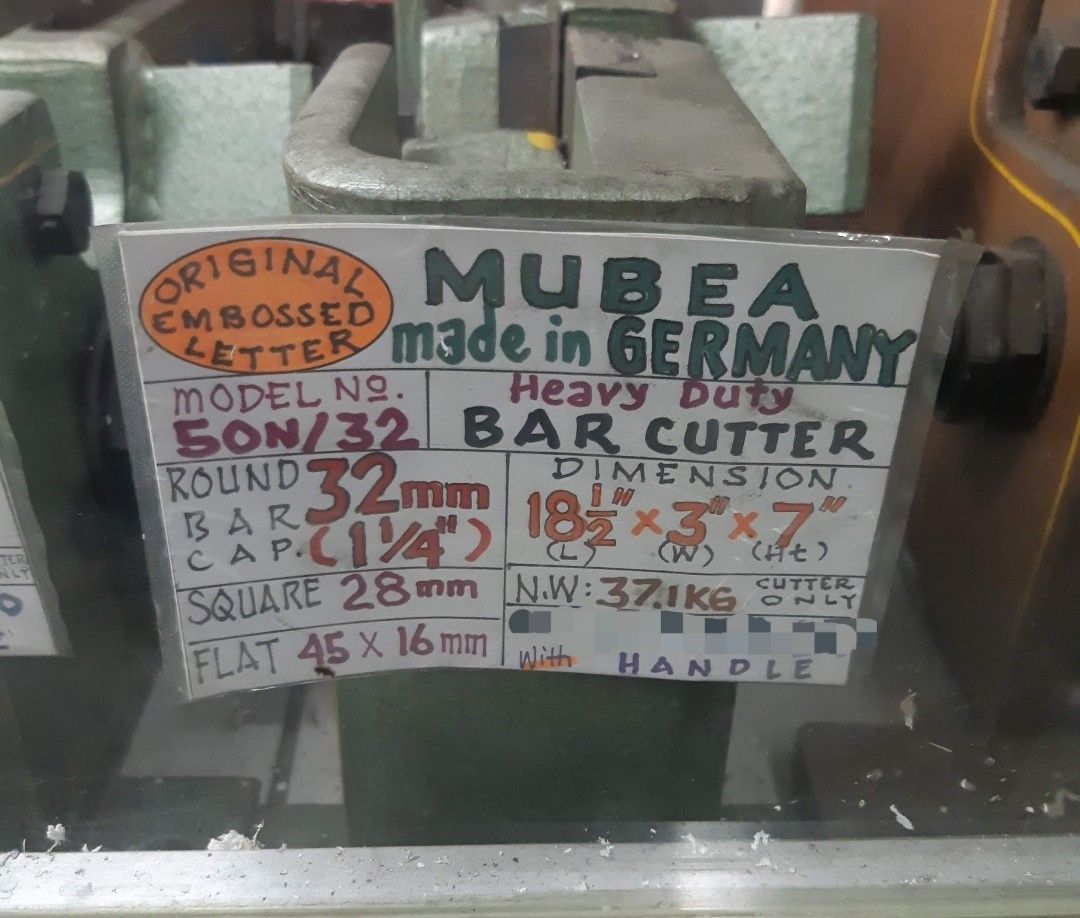 ORIGINAL
EMBOSSED
LETTER
MUBEA
made in GERMANY
MODEL NO.
50N/32
Heavy Duty
BAR CUTTER
ROUND 32mm
BAR
CAP. (1 1/4")
SQUARE 28mm
FLAT 45 X 16mm
DIMENSION
18 1/2" x 3" x 7"
(L) (W) (Ht)
N.W: 37.1KG CUTTER
ONLY
With HANDLE